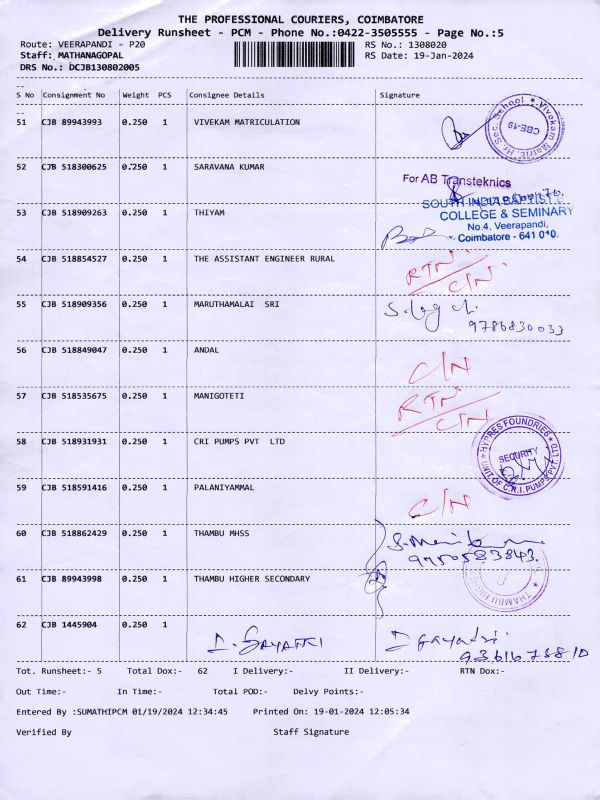 THE PROFESSIONAL COURIERS, COIMBATORE
Delivery Runsheet - PCM - Phone No.:0422-3505555 - Page No.:5
Route: VEERAPANDI - P20
RS No.: 1308020
Staff: MATHANAGOPAL
RS Date: 19-Jan-2024
DRS No.: DCJB130802005
S No Consignment No Weight PCS Consignee Details Signature
51 CJB 89943993 0.250 1 VIVEKAM MATRICULATION
Vivekam Matric. Hr. Sec. School
CBE-19
52 CJB 518300625 0.250 1 SARAVANA KUMAR
For AB Transteknics
53 CJB 518909263 0.250 1 THIYAM
SOUTH INDIA BAPTIST
COLLEGE & SEMINARY
No.4, Veerapandi,
Coimbatore - 641 0
54 CJB 518854527 0.250 1 THE ASSISTANT ENGINEER RURAL
RTN
C/N
55 CJB 518909356 0.250 1 MARUTHAMALAI SRI
9786830033
56 CJB 518849047 0.250 1 ANDAL
C/N
57 CJB 518535675 0.250 1 MANIGOTETI
RTN
C/N
58 CJB 518931931 0.250 1 CRI PUMPS PVT LTD
HYPRES FOUNDRIES
SECURITY
UNIT OF C.R.I. PUMPS PVT LTD
59 CJB 518591416 0.250 1 PALANIYAMMAL
C/N
60 CJB 518862429 0.250 1 THAMBU MHSS
61 CJB 89943998 0.250 1 THAMBU HIGHER SECONDARY
THAMBU
62 CJB 1445904 0.250 1
I. GAYATRI
I gayatri
Tot. Runsheet:- 5 Total Dox:- 62 I Delivery:- II Delivery:- RTN Dox:-
Out Time:- In Time:- Total POD:- Delvy Points:-
Entered By :SUMATHIPCM 01/19/2024 12:34:45 Printed On: 19-01-2024 12:05:34
Verified By Staff Signature